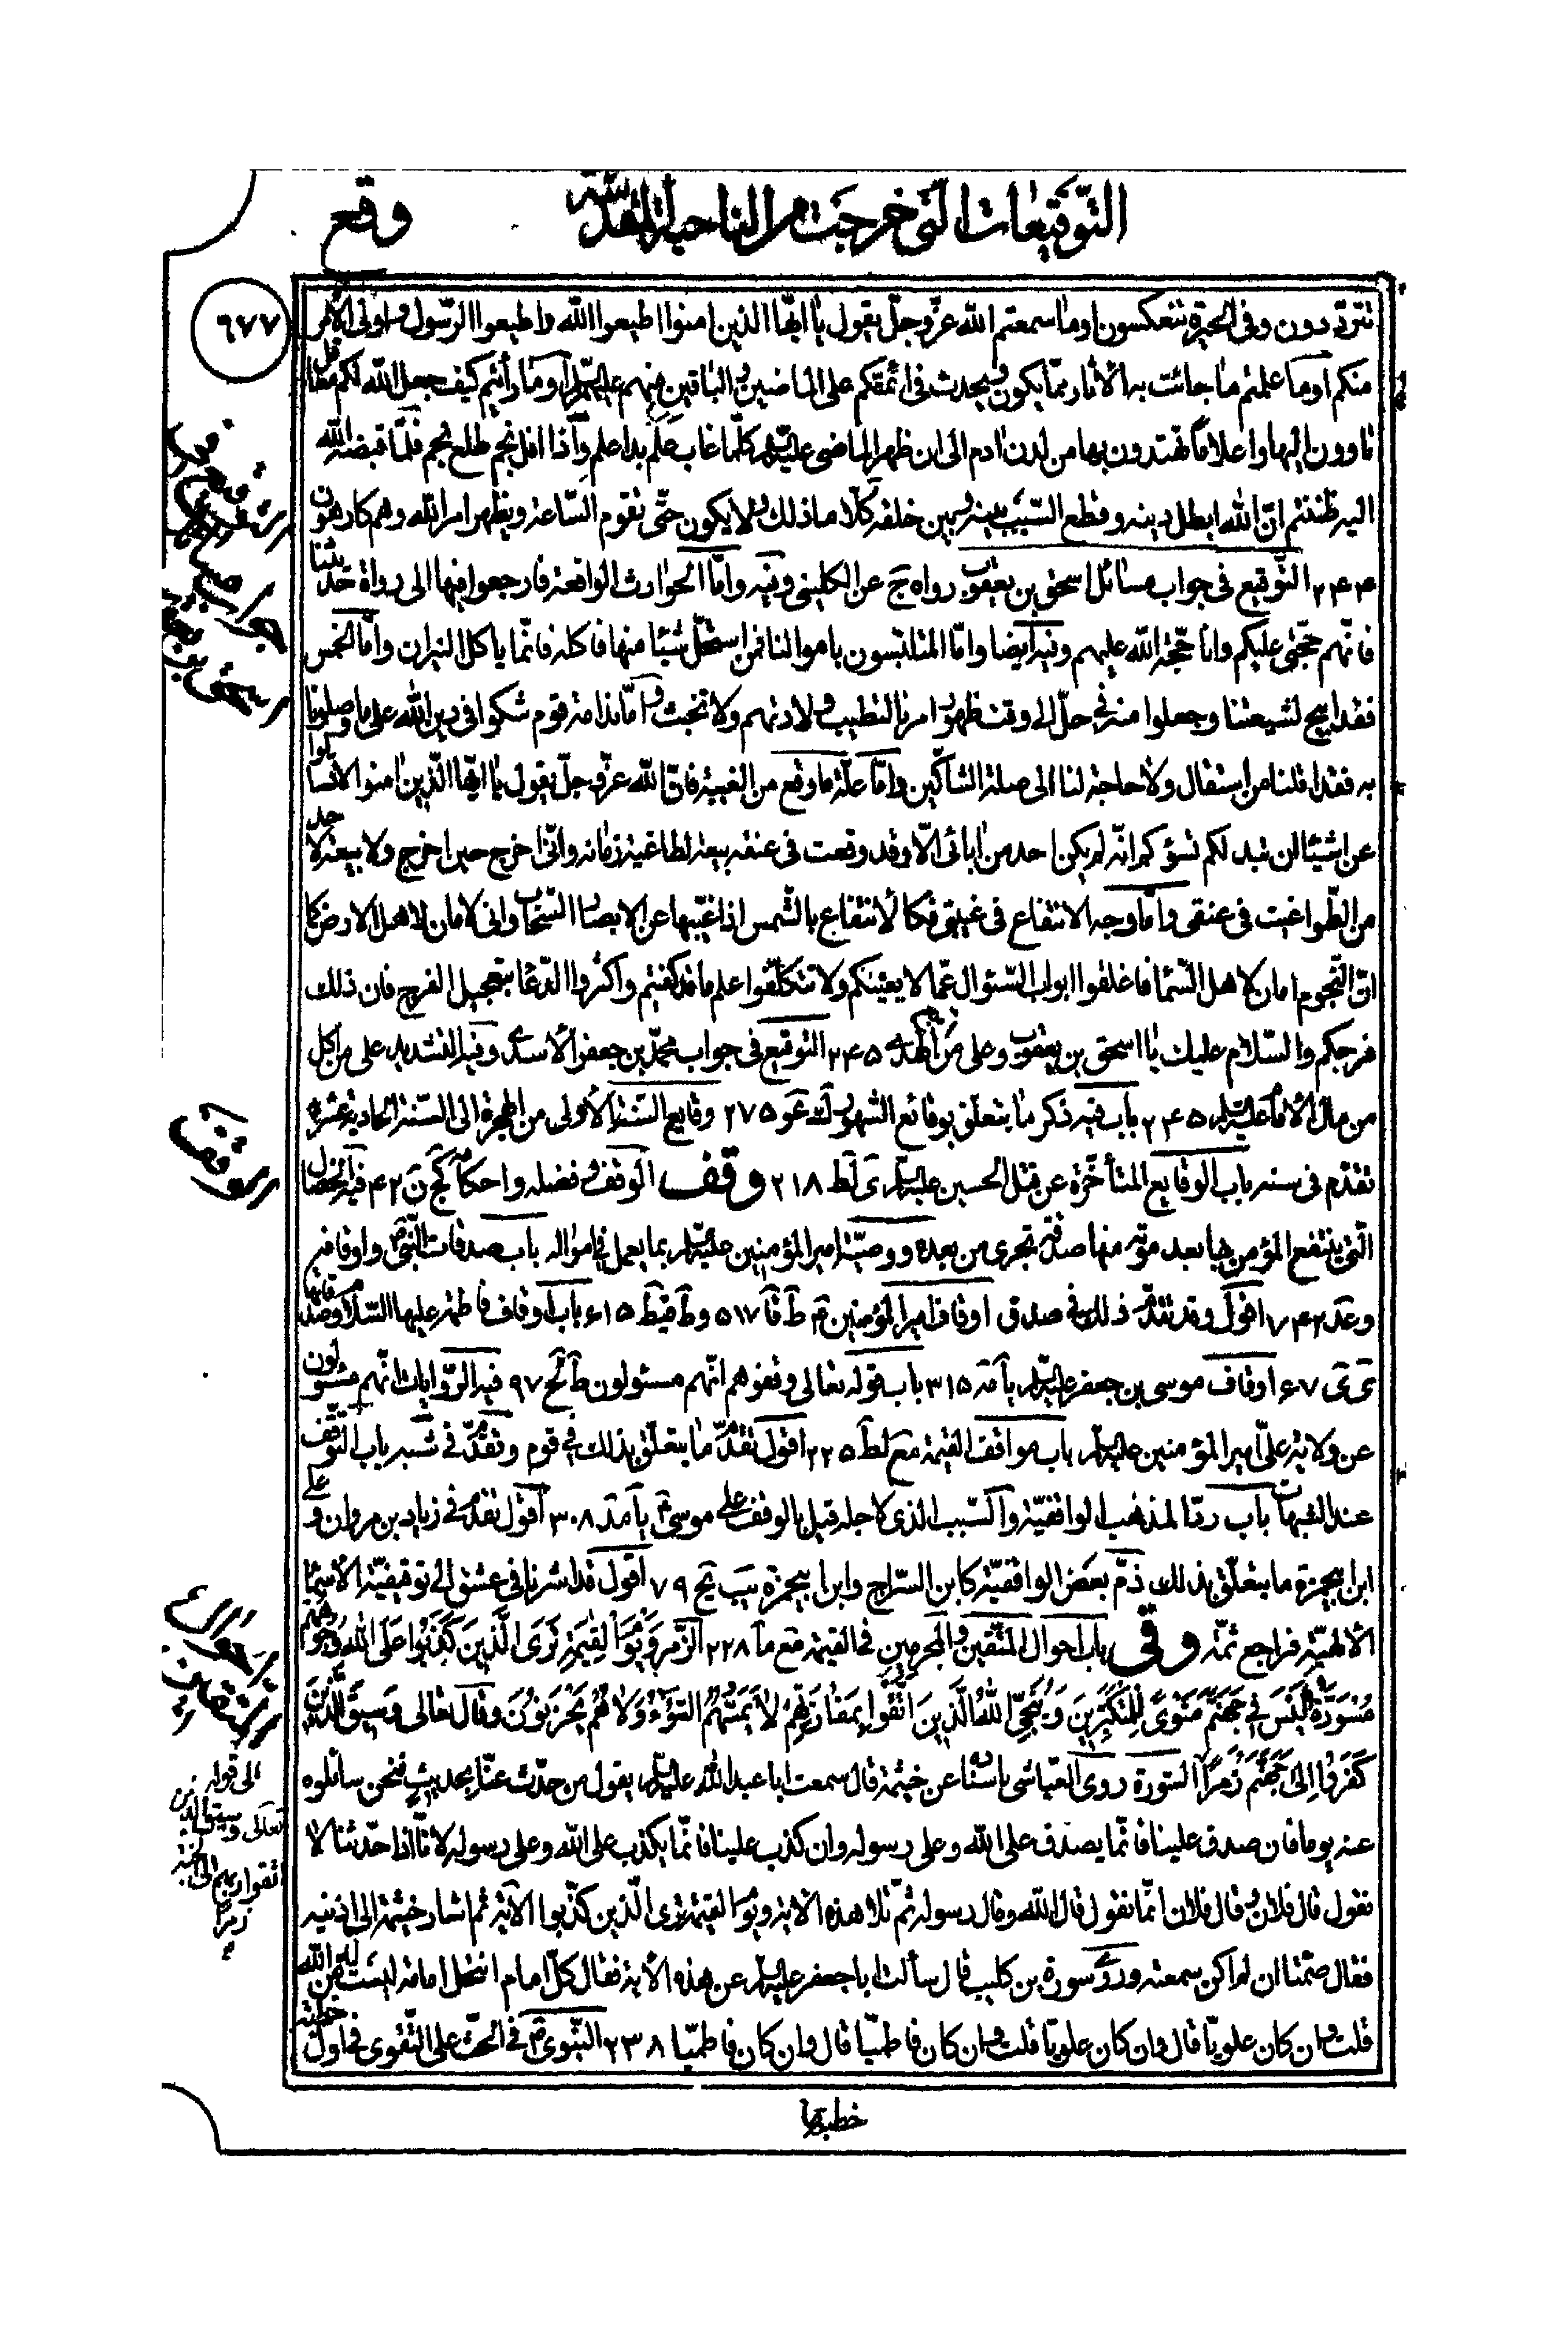 التوقيعات التي خرجت من الناحية المقدسة
وقع
٦٧٧
تتردّدون وفى الحيرة تنعكسون اوما سمعتم الله عزّ وجلّ يقول يا ايّها الذين امنوا اطيعوا الله واطيعوا الرّسول واولى الأمر
منكم اوما علمتم ما جائت به الأثار ممّا يكون ويحدث فى ائمّتكم على الماضين والباقين منهم عليهم السلام اوما رأيتم كيف جعل الله لكم معاقل
تاوون اليها واعلاما تهتدون بها من لدن ادم الى ان ظهر الماضى عليه السلام كلّما غاب علم بدا علم واذا افل نجم طلع نجم فلمّا قبضه الله
اليه ظننتم انّ الله ابطل دينه وقطع السّبب بينه وبين خلقه كلّا ما ذلك ولا يكون حتّى تقوم السّاعة ويظهر امر الله وهم كارهون
٢٤٤ التّوقيع فى جواب مسائل اسحق بن يعقوب رواه ج عن الكلينى وفيه وامّا الحوادث الواقعة فارجعوا فيها الى رواة حديثنا
فانّهم حجّتى عليكم وانا حجّة الله عليهم وفيه ايضا وامّا المتلبّسون باموالنا فمن استحلّ شيئا منها فاكله فانّما ياكل النيران وامّا الخمس
فقد ابيح لشيعتنا وجعلوا منه فى حلّ الى وقت ظهور امرنا لتطيب ولادتهم ولا تخبث وامّا ندامة قوم شكوا فى دين الله على ما وصلونا
به فقد اقلنا من استقال ولا حاجة لنا الى صلة الشاكّين وامّا علّة ما وقع من الغيبة فانّ الله عزّ وجلّ يقول يا ايّها الّذين امنوا لا تسألوا
عن اشيٰا ان تبد لكم تسؤكم انّه لم يكن احد من ابائى الّا وقد وقعت فى عنقه بيعة لطاغية زمانه وانّى اخرج حين اخرج ولا بيعة لاحد
من الطّواغيت فى عنقى وامّا وجه الانتفاع فى غيبتى فكالأنتفاع بالشّمس اذا غيّبها عن الابصار السّحاب وانى لأمان لاهل الارض كما
انّ النّجوم امان لاهل السّماء فاغلقوا ابواب السّئوال عمّا لا يعنيكم ولا تتكلّفوا علم ما قد كفيتم واكثروا الدّعا بتعجيل الفرج فان ذلك
فرجكم والسّلام عليك يا اسحق بن يعقوب وعلى من اتّبع الهدى ٢٤٥ التوقيع فى جواب محمّد بن جعفر الأسدى وفيه التشديد على من اكل
من مال الأمام عليه السلام ٢٤٥ باب فيه ذكر ما يتعلّق بوقائع الشهور ٢٧٥ وقايع السّنة الأولى من الهجرة الى السّنة الحادية عشرة
تقدّم فى سنه باب الوقايع المتأخّرة عن قتل الحسين عليه السلام ى لط ٢١٨ وقف الوقف وفضله واحكامه كج ن ٤٢ فيه الخصال
الّتى ينتفع المؤمن بها بعد موته منها صدقة تجرى من بعده ووصيّة امير المؤمنين عليه السلام بما يعمل فى امواله باب صدقات النّبى ص واوقافه
و عد ٧٤٢ اقول وقد تقدّم ذلك فى صدق اوقاف امير المؤمنين ع ط قا ٥١٧ وط قيط ٦١٥ باب اوقاف فاطمة عليها السّلام وصدقاتها
ى ى ٦٧ اوقاف موسى بن جعفر عليه السلام يا مه ٣١٥ باب قوله تعالى وقفوهم انّهم مسئولون ط لح ٩٧ فيه الرّوايات انّهم مسئولون
عن ولاية علىّ امير المؤمنين عليه السلام باب مواقف القيمة مع لط ٢٢٥ اقول تقدّم ما يتعلّق بذلك فى قوم وتقدّم فى شبه باب التّوقّف
عند الشبهات باب ردّ المذهب الواقفيّة والسّبب الذى لاجله قيل بالوقف على موسى ع يا مد ٣٠٨ اقول تقدّم فى زياد بن مروان وعلى
ابن ابيحمزة ما يتعلّق بذلك ذمّ بعض الواقفيّة كابن السّراج وابن ابيحمزة يب يج ٧٩ اقول قد اشرنا فى عشق الى توقيفيّة الاسمٰا
الالهيّة فراجع ثمّة وقى باب احوال المتّقين والمجرمين فى القيمة مع ما ٢٢٨ الزّمر وَيَوْمَ الْقِيٰمَةِ تَرَى الَّذينَ كَذَبُوا عَلَى اللهِ وُجُوهُهُمْ
مُسْوَدَّةٌ اَلَيْسَ فى جَهَنَّمَ مَثْوًى لِلْمُتَكَبِّرينَ وَيُنَجِّى اللهُ الَّذينَ اتَّقَوْا بِمَفازَتِهِمْ لا يَمَسُّهُمُ السُّوءُ وَلا هُمْ يَحْزَنُونَ وقال تعالى وَسيقَ الَّذينَ
كَفَرُوا اِلى جَهَنَّمَ زُمَراً السّورة روى العيّاشى باسناده عن خيثمة قال سمعت ابا عبد الله عليه السلام يقول من حدّث عنّا بحديث فنحن سائلوه
عنه يوما فان صدق علينا فانّما يصدق على الله وعلى رسوله وان كذب علينا فانّما يكذب على الله وعلى رسوله لانّا اذا حدّثنا لا
نقول قال فلان وقال فلان انّما نقول قال الله وقال رسوله ثمّ تلا هذه الآية ويوم القيمة ترى الّذين كذبوا الآية ثمّ اشار خيثمة الى اذنيه
فقال صمّتا ان لم اكن سمعته وروى سورة بن كليب قال سألت ابا جعفر عليه السلام عن هذه الأية فقال كلّ امام انتحل امامة ليست له من الله
قلت وان كان علويّا قال وان كان علويّا قلت وان كان فاطميّا قال وان كان فاطميّا ٢٣٨ النّبوى ص فى الحثّ على التّقوى فى اول خطبة
خطبها
الوقف
الى قوله
تعالى وسيق الذين
اتقوا ربهم الى الجنة
زمرا